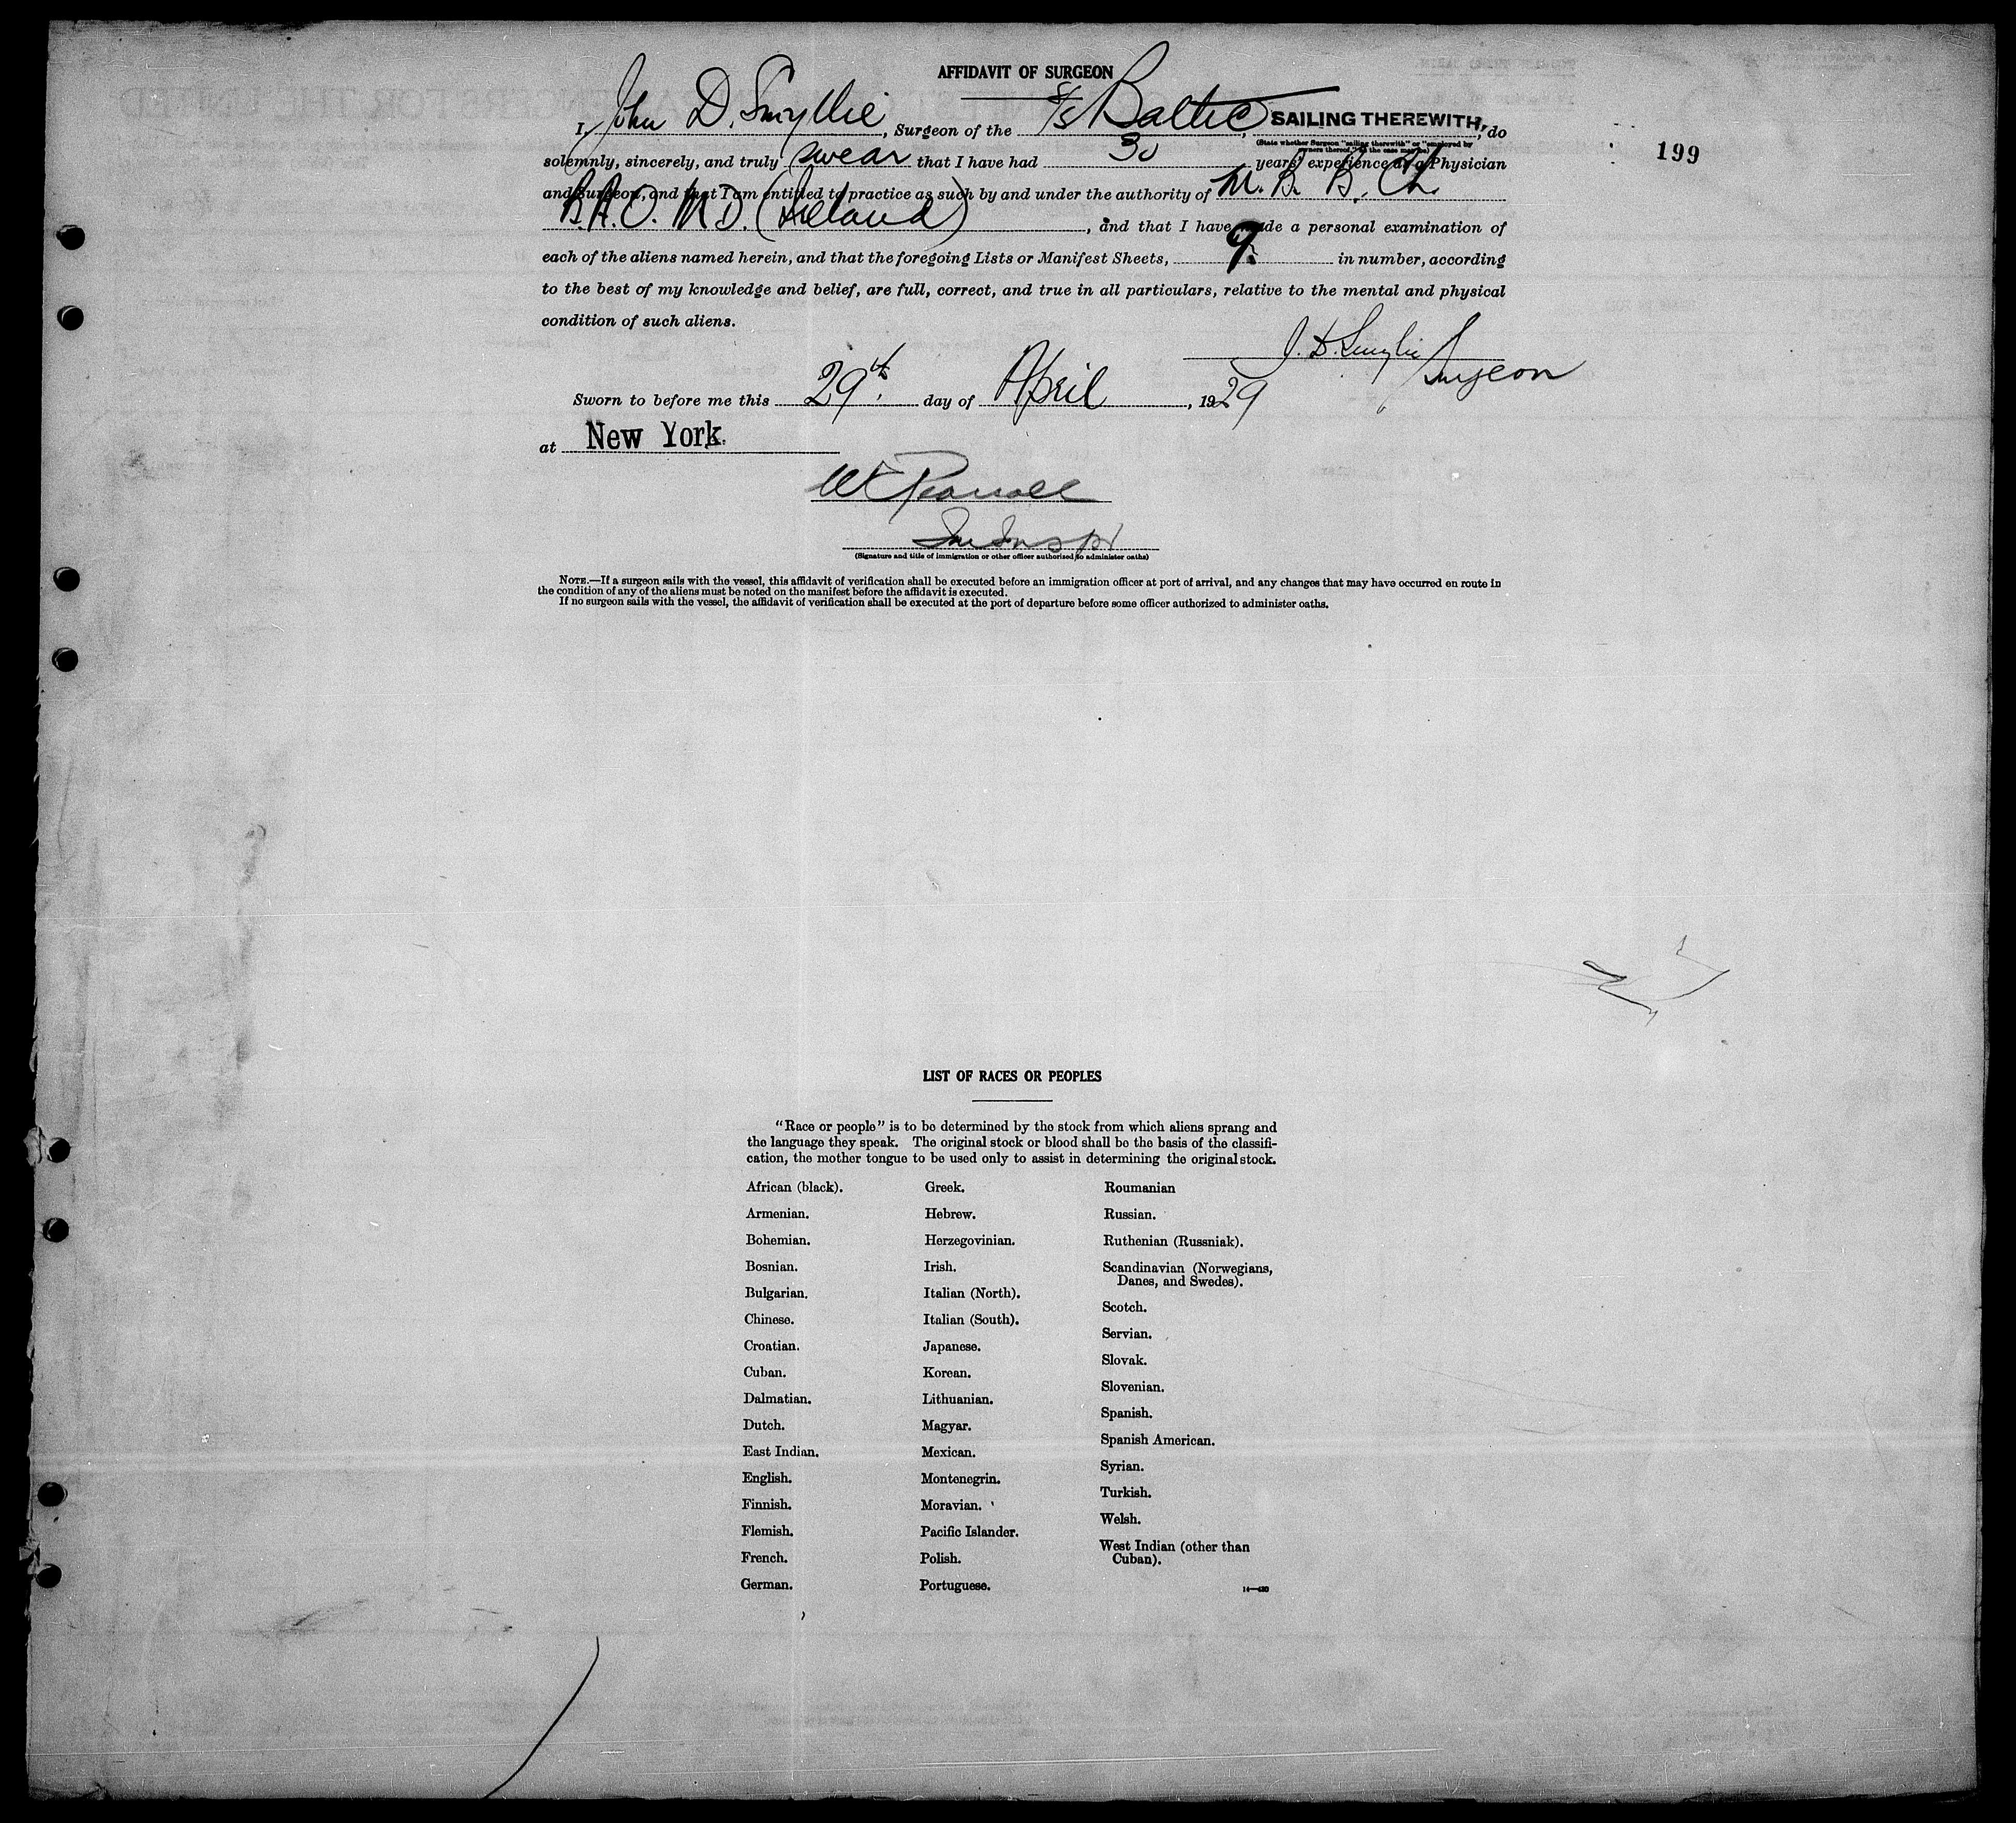 AFFIDAVIT OF SURGEON
I, John D. Smyllie, Surgeon of the S/S Baltic, SAILING THEREWITH, do
(State whether Surgeon "sailing therewith" or "employed by
owners thereof," as the case may be)
solemnly, sincerely, and truly swear that I have had 30 years' experience as a Physician
and Surgeon, and that I am entitled to practice as such by and under the authority of M.B. B.Ch.
B.A.O. M.D. (Ireland), and that I have made a personal examination of
each of the aliens named herein, and that the foregoing Lists or Manifest Sheets, 9 in number, according
to the best of my knowledge and belief, are full, correct, and true in all particulars, relative to the mental and physical
condition of such aliens.
J. D. Smylie
Surgeon
Sworn to before me this 29th. day of April, 1929
at New York.
(Signature and title of immigration or other officer authorized to administer oaths)
NOTE.—If a surgeon sails with the vessel, this affidavit of verification shall be executed before an immigration officer at port of arrival, and any changes that may have occurred en route in
the condition of any of the aliens must be noted on the manifest before the affidavit is executed.
If no surgeon sails with the vessel, the affidavit of verification shall be executed at the port of departure before some officer authorized to administer oaths.
199
LIST OF RACES OR PEOPLES
"Race or people" is to be determined by the stock from which aliens sprang and
the language they speak. The original stock or blood shall be the basis of the classifi-
cation, the mother tongue to be used only to assist in determining the original stock.
African (black).
Armenian.
Bohemian.
Bosnian.
Bulgarian.
Chinese.
Croatian.
Cuban.
Dalmatian.
Dutch.
East Indian.
English.
Finnish.
Flemish.
French.
German.
Greek.
Hebrew.
Herzegovinian.
Irish.
Italian (North).
Italian (South).
Japanese.
Korean.
Lithuanian.
Magyar.
Mexican.
Montenegrin.
Moravian.
Pacific Islander.
Polish.
Portuguese.
Roumanian
Russian.
Ruthenian (Russniak).
Scandinavian (Norwegians,
Danes, and Swedes).
Scotch.
Servian.
Slovak.
Slovenian.
Spanish.
Spanish American.
Syrian.
Turkish.
Welsh.
West Indian (other than
Cuban).